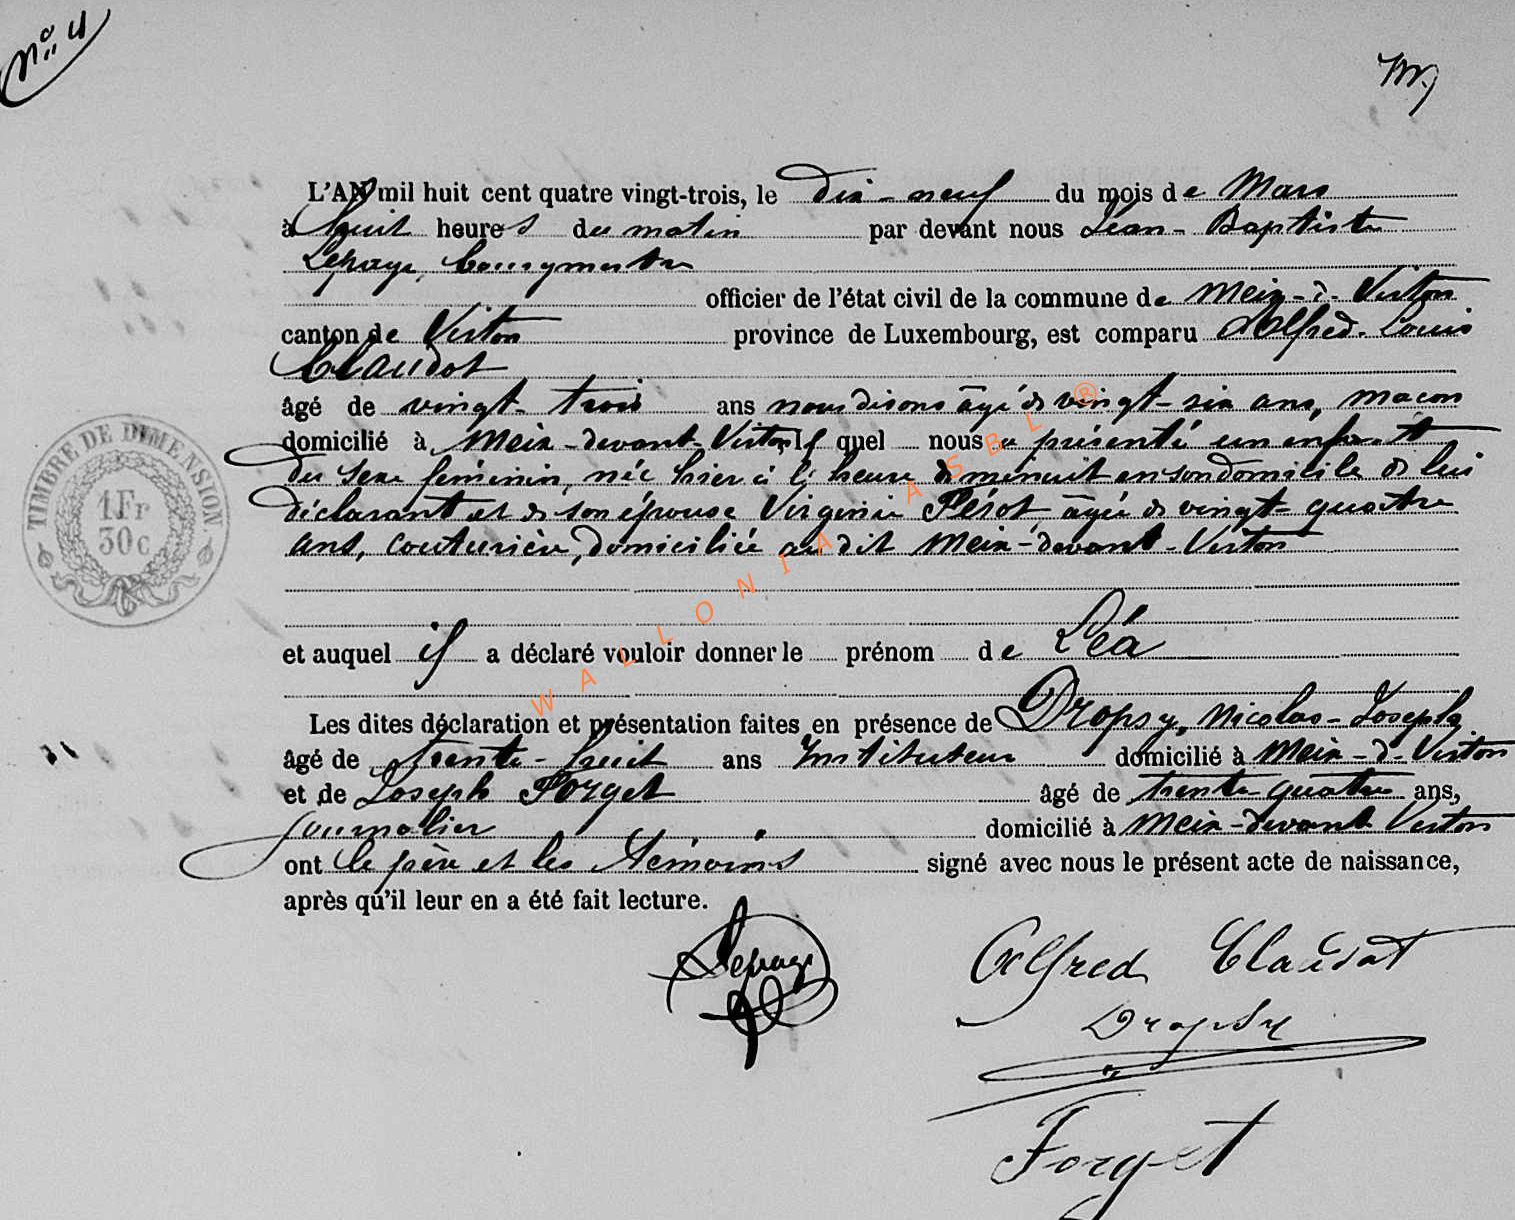 N° 4
L'AN mil huit cent quatre vingt-trois, le dix-neuf du mois de Mars
à huit heures du matin par devant nous Jean-Baptiste
Lepage, bourgmestre
officier de l'état civil de la commune de Meix-d-Virton
canton de Virton province de Luxembourg, est comparu Alfred-Louis
Claudot
âgé de vingt-trois ans nous disons âgé de vingt-six ans, maçon
domicilié à Meix-devant-Virton, lequel nous a présenté un enfant
du sexe féminin, née hier à l'heure de minuit en son domicile de lui
déclarant et de son épouse Virginie Pérot, âgée de vingt-quatre
ans, couturière, domiciliée au dit Meix-devant-Virton
et auquel il a déclaré vouloir donner le prénom de Léa
Les dites déclaration et présentation faites en présence de Dropsy, Nicolas-Joseph
âgé de trente-huit ans Instituteur domicilié à Meix-d-Virton
et de Joseph Forget âgé de trente-quatre ans,
journalier domicilié à Meix-devant Virton
ont le père et les témoins signé avec nous le présent acte de naissance,
après qu'il leur en a été fait lecture.
Lepage
Alfred Claudot
Dropsy
Forget
TIMBRE DE DIMENSION
1Fr
30c
WALLONIA ASBL ®